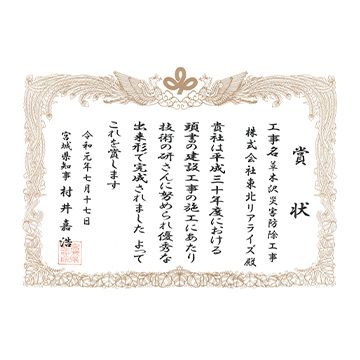 賞状
工事名 草木沢災害防除工事
株式会社東北リアライズ殿
貴社は平成三十年度における
頭書の建設工事の施工にあたり
技術の研さんに努められ優秀な
出来形で完成されました よって
これを賞します
令和元年七月十七日
宮城県知事 村井嘉浩